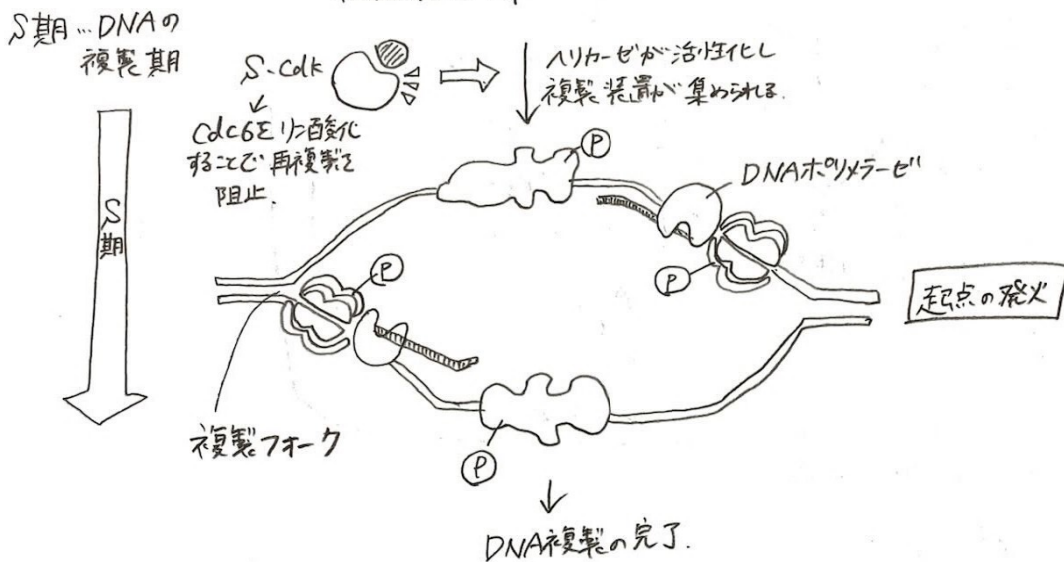 S期…DNAの
複製期
S-Cdk
Cdc6をリン酸化
することで再複製を
阻止.
ヘリカーゼが活性化し
複製装置が集められる.
P
DNAポリメラーゼ
S期
P
P
起点の発火
複製フォーク
P
DNA複製の完了.